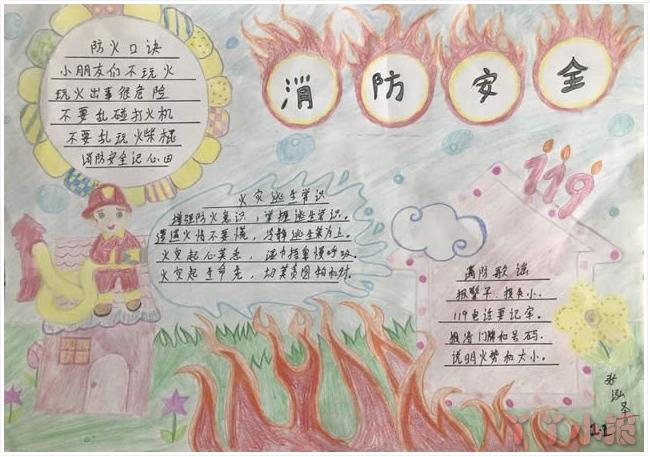 消防安全
防火口诀
小朋友们不玩火
玩火出事很危险
不要乱碰打火机
不要乱玩火柴棍
消防安全记心田
火灾逃生常识
增强防火意识，掌握逃生常识。
遭遇火情不要慌，冷静逃生为上。
火灾起心莫急，湿巾捂鼻慢呼吸。
火灾起生命危，切莫贪图
119
消防歌谣
报警早，损失小。
119电话要记牢。
报清门牌和号码，
说明火势和大小。
泓
1.1